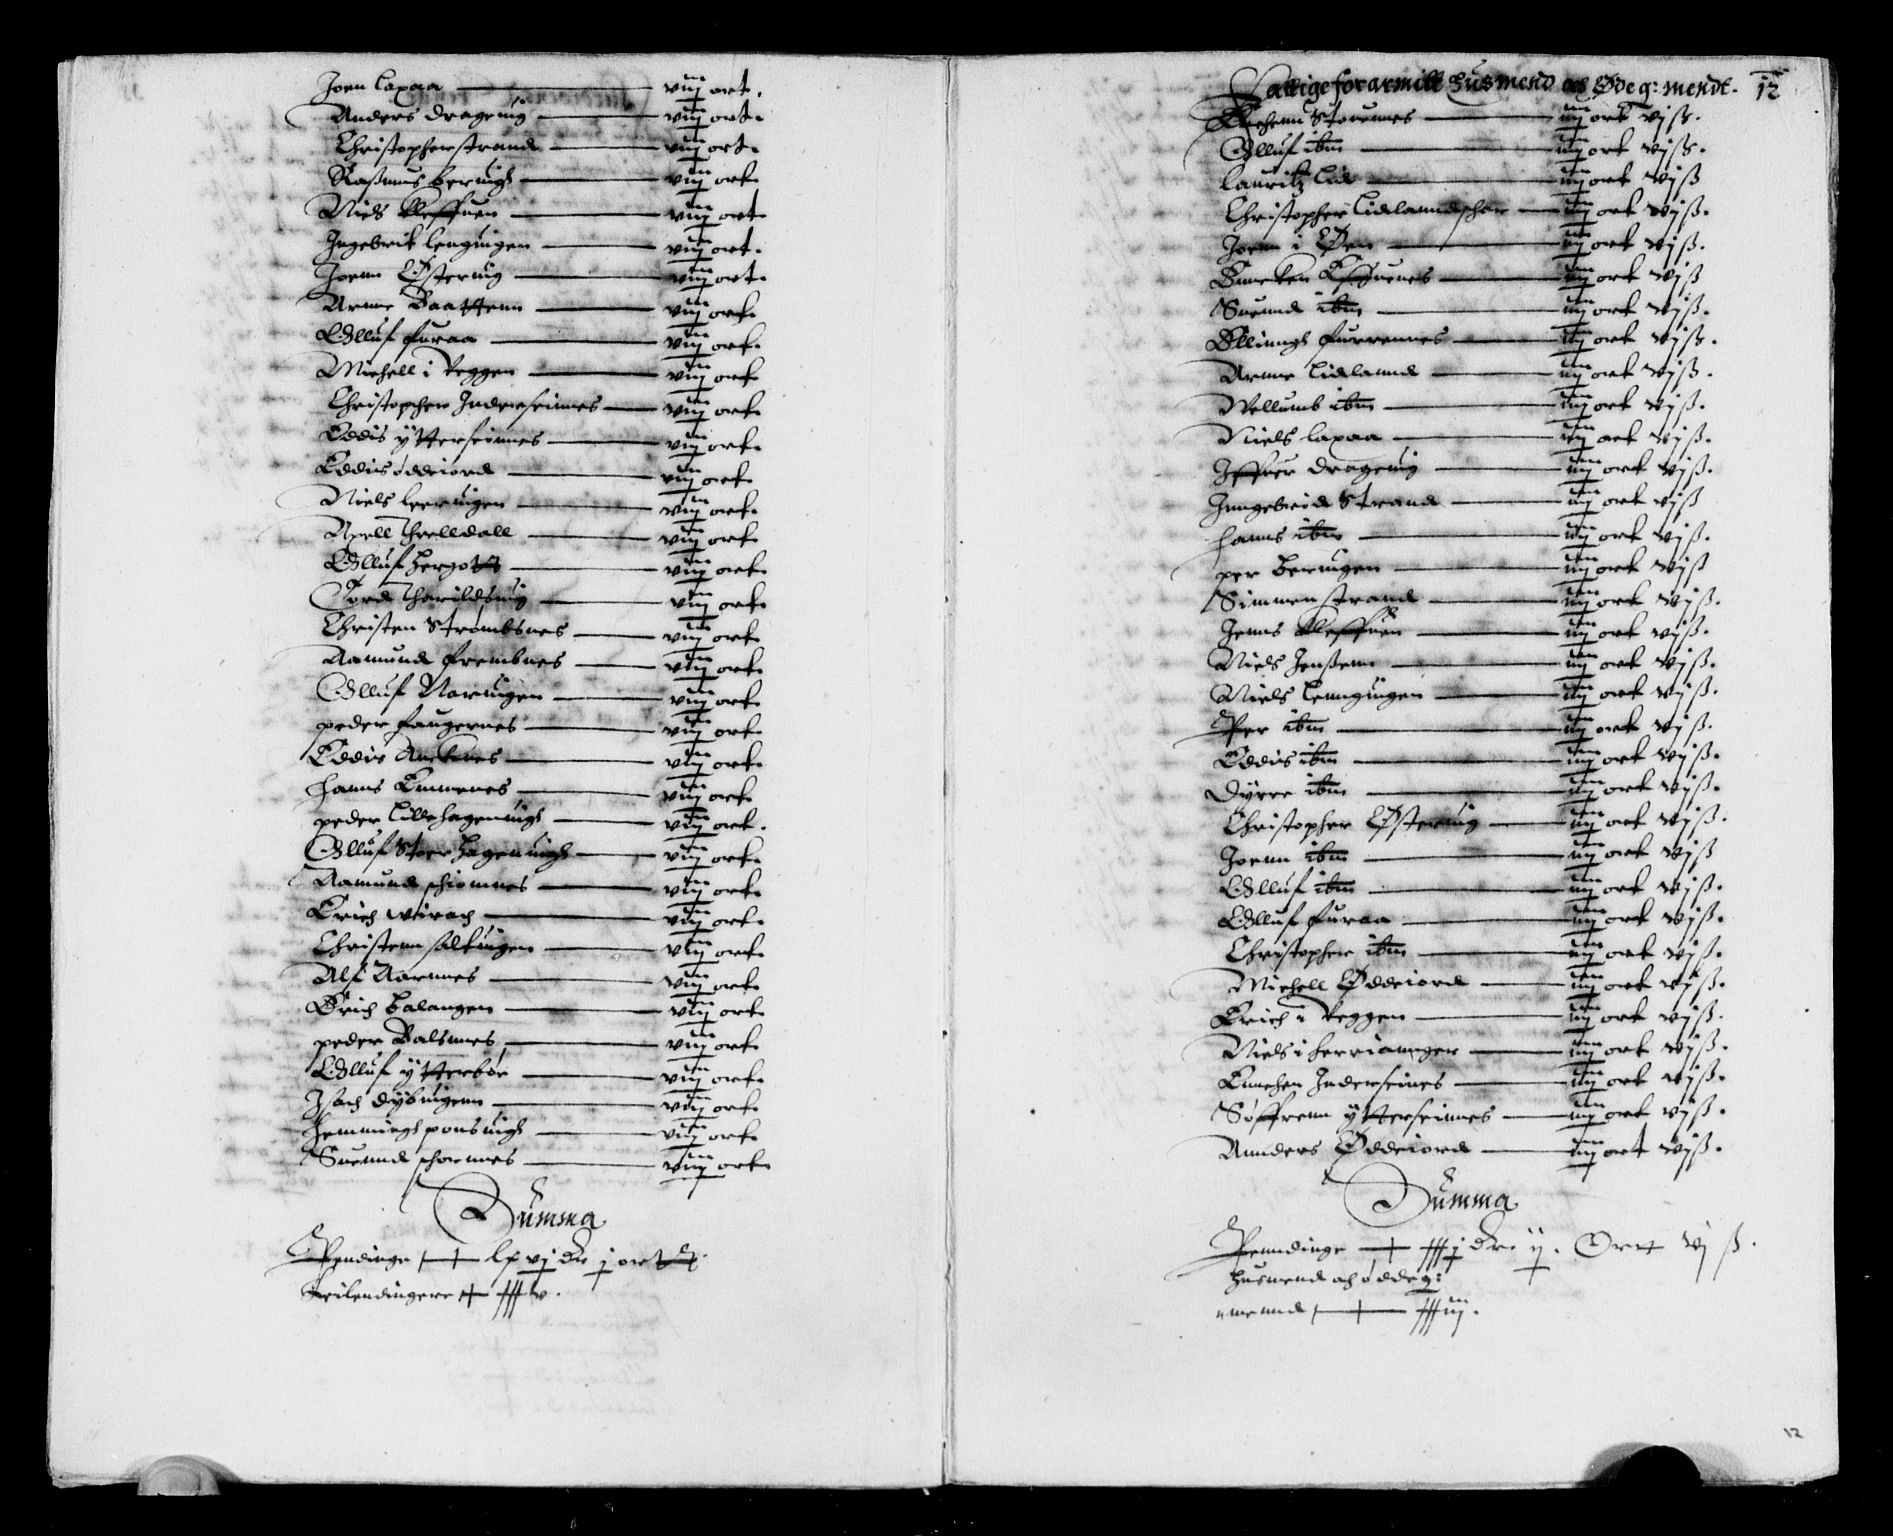 Joen Laxaa — viij ort.
Anders Drageuig — viij ort.
Christopher strand — viij ort.
Raßmus beruigh — viij ort
Niels Kleffuen — viij ort
Ingebrit Lenguigen — viij ort.
Joenn Østeruig — viij ort
Arnne Baattenn — viij ort
Olluf furaa — viij ort.
Michell i Veggen — viij ort
Christopher Inderseinnes — viij ort
Eddis ytterseinnes — viij ort
Eddis øddeiord — viij ort.
Niels leeruigen — viij ort.
Axell Threlldall — viij ort
Olluf Hergott — viij ort
Tord Tharildsuig — viij ort
Christen Strømbsnes — viij ort
Aamund frembnes — viij ort
Olluf Naruigen — viij ort
peder faugernes — viij ort
Eddis Anckenes — viij ort
Hanns Emmenes — viij ort
peder Lillehagennigh — viij ort.
Olluf Stoer Hagenuigh — viij ort
Aamund schiomnes — viij ort
Erich wirach — viij ort
Christenn saltuigen — viij ort
Alf Aarnnes — viij ort
Erich Balangen — viij ort
peder Balsnnes — viij ort
Olluf ytterbør — viij ort
Isach dybuigenn — viij ort
Hemmingh ponsuigh — viij ort
Suennd schornnes — viij ort
Summa
Pendinge — lx vj dlr j ort
Leilendingere — v.
Fattige forarmitt Husmend och Ødeg: mendt. 12
Stornnes — iiij ort vj ß.
Olluf ibm — iiij ort vj ß.
Lauritz Lid — iiij ort vj ß
Christopher Lidlanndschor — iiij ort vj ß.
Joenn i Øen — iiij ort vj ß.
Enneken — iiij ort vj ß
Suennd ibm — iiij ort vj ß.
Ellingh furrennes — iiij ort vj ß.
Arnne Lidlannd — iiij ort vj ß.
Wellumb ibm — iiij ort vj ß.
Niels Laxaa — iiij ort vj ß.
Iffuer Drageuig — iiij ort vj ß.
Inngebrid Strand — iiij ort vj ß
Hanns ibm — iiij ort vj ß.
per Beruigen — iiij ort vj ß
Simmen strannd — iiij ort vj ß.
Jenns Kleffuen — iiij ort vj ß.
Niels Jenßenn — iiij ort vj ß.
Niels Lennguigen — iiij ort vj ß.
Per ibm — iiij ort vj ß.
Eddis ibm — iiij ort vj ß.
Dyrre ibm — iiij ort vj ß.
Christopher Østeruig — iiij ort vj ß.
Joenn ibm — iiij ort vj ß
Olluf ibm — iiij ort vj ß.
Olluf furaa — iiij ort vj ß.
Christopher ibm — iiij ort vj ß.
Michell Øddeiord — iiij ort vj ß.
Erich i Veggen — iiij ort vj ß.
Niels i Herrianger — iiij ort vj ß.
Ennchen Inderseines — iiij ort vj ß.
Søffrenn ytterseinnes — iiij ort vj ß.
Annders Øddeiord — iiij ort vj ß.
Summa
Penndinge — j Dlr. ij. Ort vj ß.
Husmend och øddeg:
mennd — iij.
12